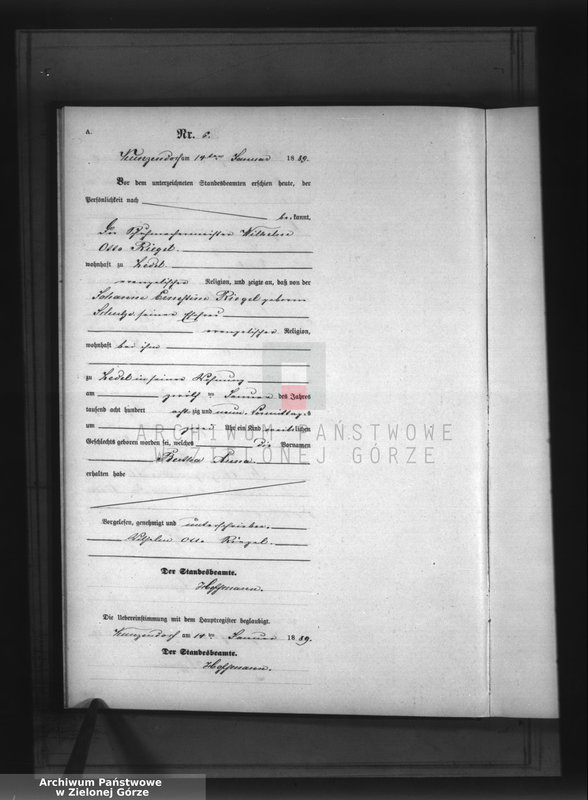 A.
Nr. 6.
Kunzendorf am 14ten Januar 1889.
Vor dem unterzeichneten Standesbeamten erschien heute, der
Persönlichkeit nach
be kannt,
Der Schuhmachermeister Wilhelm
Otto Riegel
wohnhaft zu Zedel
evangelischer Religion, und zeigte an, daß von der
Johanna Ernestine Riegel geborene
Schulze seiner Ehefrau
evangelischer Religion,
wohnhaft bei ihm
zu Zedel in seiner Wohnung
am zwölften Januar des Jahres
tausend acht hundert acht zig und neun Vormittags
um Uhr ein Kind weib lichen
Geschlechts geboren worden sei, welches die Vornamen
Bertha Anna
erhalten habe
Vorgelesen, genehmigt und unterschrieben.
Wilhelm Otto Riegel.
Der Standesbeamte.
Hoffmann.
Die Uebereinstimmung mit dem Hauptregister beglaubigt.
Kunzendorf am 14ten Januar 1889.
Der Standesbeamte.
Hoffmann.
ARCHIWUM PAŃSTWOWE
W ZIELONEJ GÓRZE
Archiwum Państwowe
w Zielonej Górze